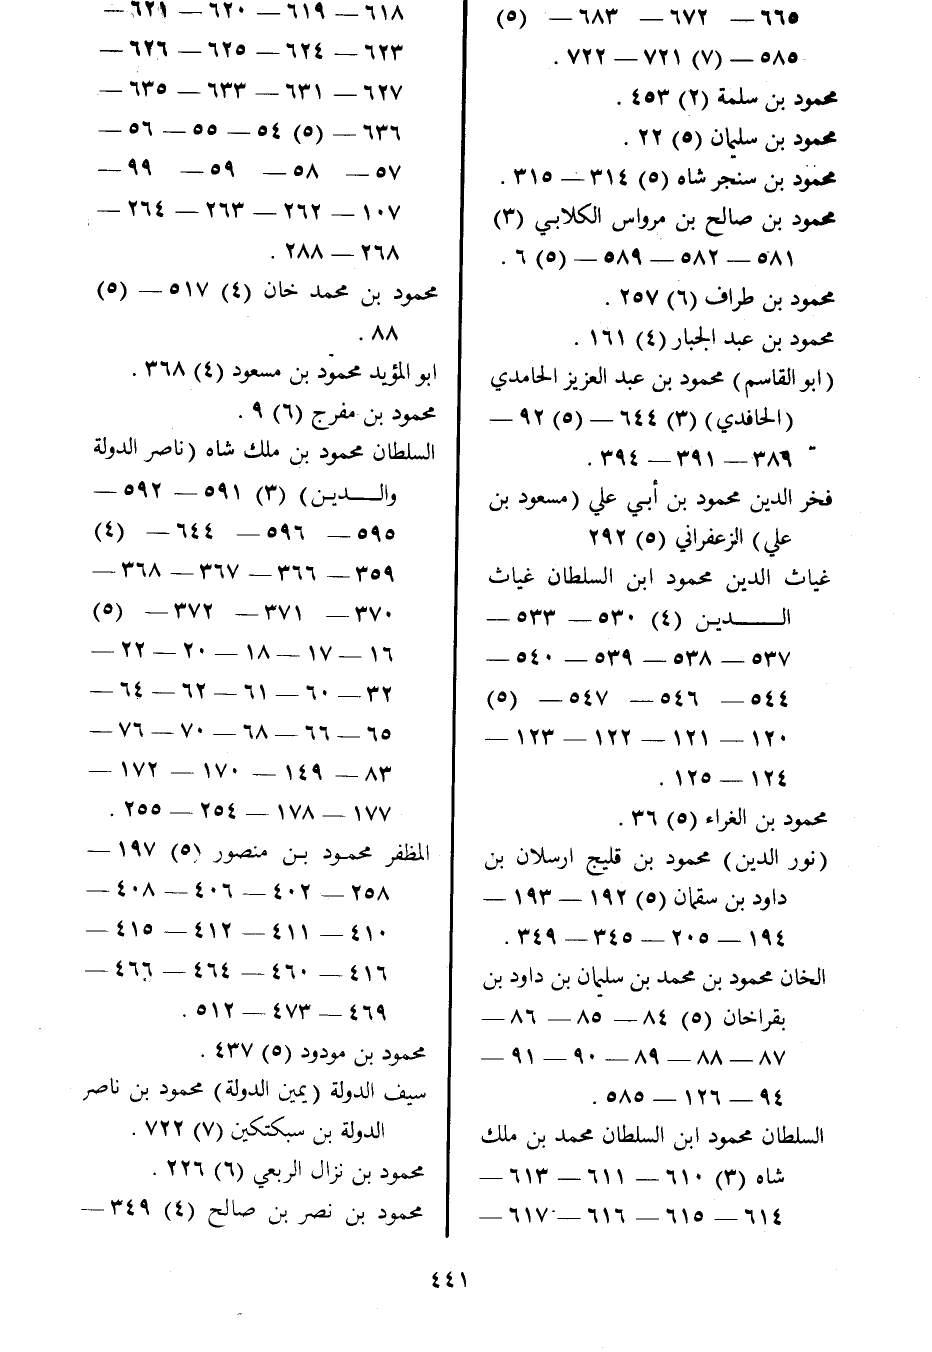 ٦٦٥ — ٦٧٢ — ٦٨٣ — (٥)
٥٨٥ — (٧) ٧٢١ — ٧٢٢ .
محمود بن سلمة (٢) ٤٥٣ .
محمود بن سليمان (٥) ٢٢ .
محمود بن سنجر شاه (٥) ٣١٤ — ٣١٥ .
محمود بن صالح بن مرواس الكلابي (٣)
٥٨١ — ٥٨٢ — ٥٨٩ — (٥) ٦ .
محمود بن طراف (٦) ٢٥٧ .
محمود بن عبد الجبار (٤) ١٦١ .
(ابو القاسم) محمود بن عبد العزيز الحامدي
(الحافدي) (٣) ٦٤٤ — (٥) ٩٢ —
٣٨٩ — ٣٩١ — ٣٩٤ .
فخر الدين محمود بن أبي علي (مسعود بن
علي) الزعفراني (٥) ٢٩٢
غياث الدين محمود ابن السلطان غياث
الـــدين (٤) ٥٣٠ — ٥٣٣ —
٥٣٧ — ٥٣٨ — ٥٣٩ — ٥٤٠ —
٥٤٤ — ٥٤٦ — ٥٤٧ — (٥)
١٢٠ — ١٢١ — ١٢٢ — ١٢٣ —
١٢٤ — ١٢٥ .
محمود بن الغراء (٥) ٣٦ .
(نور الدين) محمود بن قليج ارسلان بن
داود بن سقمان (٥) ١٩٢ — ١٩٣ —
١٩٤ — ٢٠٥ — ٣٤٥ — ٣٤٩ .
الخان محمود بن محمد بن سليمان بن داود بن
بقراخان (٥) ٨٤ — ٨٥ — ٨٦ —
٨٧ — ٨٨ — ٨٩ — ٩٠ — ٩١ —
٩٤ — ١٢٦ — ٥٨٥ .
السلطان محمود ابن السلطان محمد بن ملك
شاه (٣) ٦١٠ — ٦١١ — ٦١٣ —
٦١٤ — ٦١٥ — ٦١٦ — ٦١٧ —
٦١٨ — ٦١٩ — ٦٢٠ — ٦٢١ —
٦٢٣ — ٦٢٤ — ٦٢٥ — ٦٢٦ —
٦٢٧ — ٦٣١ — ٦٣٣ — ٦٣٥ —
٦٣٦ — (٥) ٥٤ — ٥٥ — ٥٦ —
٥٧ — ٥٨ — ٥٩ — ٩٩ —
١٠٧ — ٢٦٢ — ٢٦٣ — ٢٦٤ —
٢٦٨ — ٢٨٨ .
محمود بن محمد خان (٤) ٥١٧ — (٥)
٨٨ .
ابو المؤيد محمود بن مسعود (٤) ٣٦٨ .
محمود بن مفرج (٦) ٩ .
السلطان محمود بن ملك شاه (ناصر الدولة
والـــدين) (٣) ٥٩١ — ٥٩٢ —
٥٩٥ — ٥٩٦ — ٦٤٤ — (٤)
٣٥٩ — ٣٦٦ — ٣٦٧ — ٣٦٨ —
٣٧٠ — ٣٧١ — ٣٧٢ — (٥)
١٦ — ١٧ — ١٨ — ٢٠ — ٢٢ —
٣٢ — ٦٠ — ٦١ — ٦٢ — ٦٤ —
٦٥ — ٦٦ — ٦٨ — ٧٠ — ٧٦ —
٨٣ — ١٤٩ — ١٧٠ — ١٧٢ —
١٧٧ — ١٧٨ — ٢٥٤ — ٢٥٥ .
المظفر محمود بن منصور (٥) ١٩٧ —
٢٥٨ — ٤٠٢ — ٤٠٦ — ٤٠٨ —
٤١٠ — ٤١١ — ٤١٢ — ٤١٥ —
٤١٦ — ٤٦٠ — ٤٦٤ — ٤٦٦ —
٤٦٩ — ٤٧٣ — ٥١٢ .
محمود بن مودود (٥) ٤٣٧ .
سيف الدولة (يمين الدولة) محمود بن ناصر
الدولة بن سبكتكين (٧) ٧٢٢ .
محمود بن نزال الربعي (٦) ٢٢٦ .
محمود بن نصر بن صالح (٤) ٣٤٩ —
٤٤١